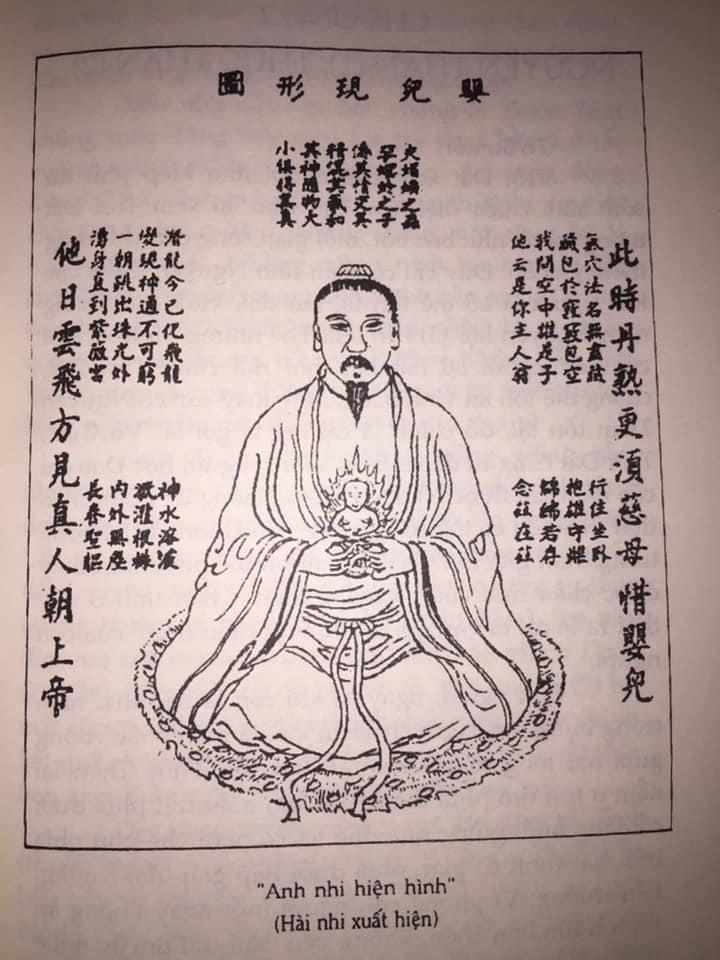 嬰兒現形圖
夫蜾蠃之蟲
孕螟蛉之子
傳其情交其
精混其氣和
其神隨物大
小俱得其真
此時丹熟更須慈母惜嬰兒
氣穴法名無盡藏
藏包於竅竅包空
我問空中誰是子
他云是你主人翁
行住坐臥
抱雄守雌
綿綿若存
念茲在茲
潛龍今已化飛龍
變現神通不可窮
一朝跳出珠光外
湧身直到紫薇宮
神水溶液
溉灌根株
內外無塵
長養聖軀
他日雲飛方見真人朝上帝
"Anh nhi hiện hình"
(Hài nhi xuất hiện)